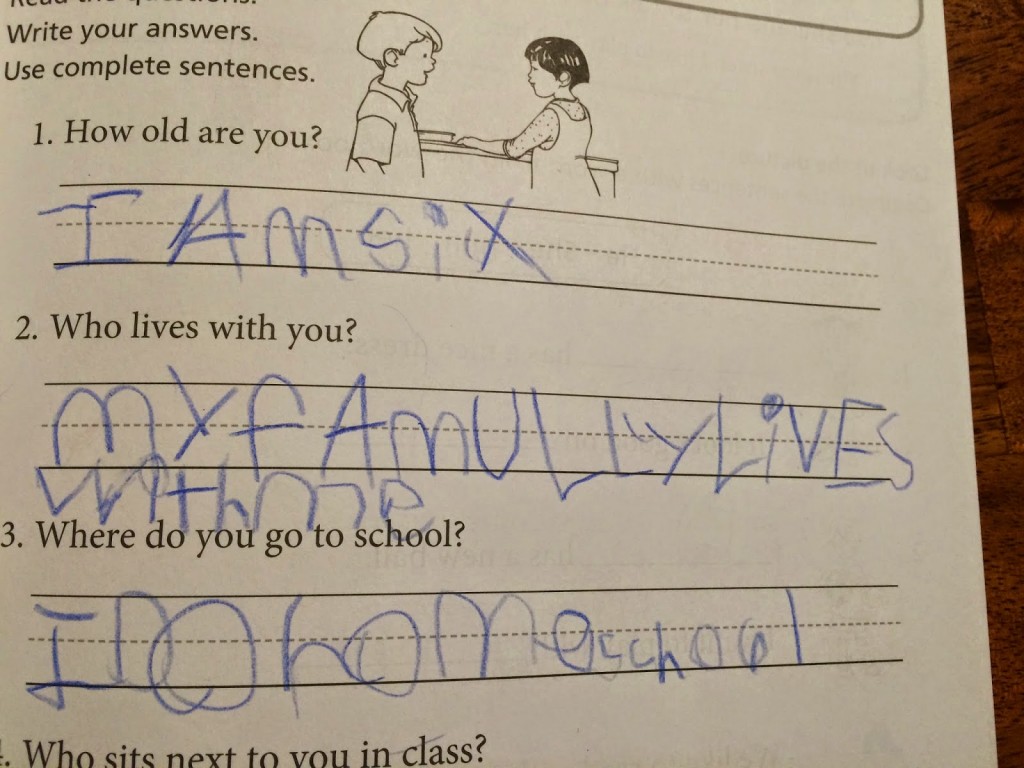 Read the questions.
Write your answers.
Use complete sentences.
1. How old are you?
I Am six
2. Who lives with you?
mY fAmULLy LiVES
with me
3. Where do you go to school?
I DO homeschool
4. Who sits next to you in class?